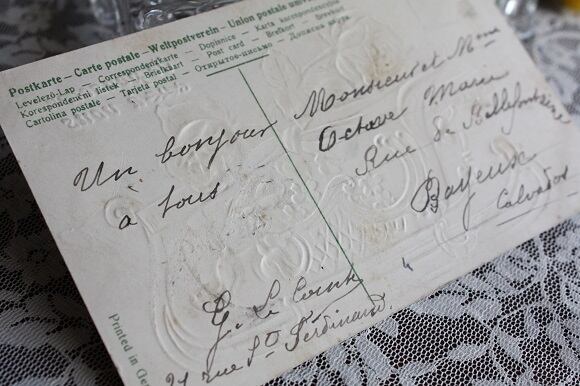 Postkarte – Carte postale – Weltpostverein – Union postale universelle
Levelező-Lap – Correspondenzkarte – Dopisnice – Karta korespondencyjna
Korespondenční lístek – Briefkaart – Post card – Brefkort – Brevkort
Cartolina postale – Tarjeta postal – Открытое письмо – Дописна карта
Un bonjour
à tous
Monsieur et Mme
Octave Marie
Rue de
Bayeux
Calvados
4
G. Le Comte
21 rue St Ferdinand
Printed in Ge